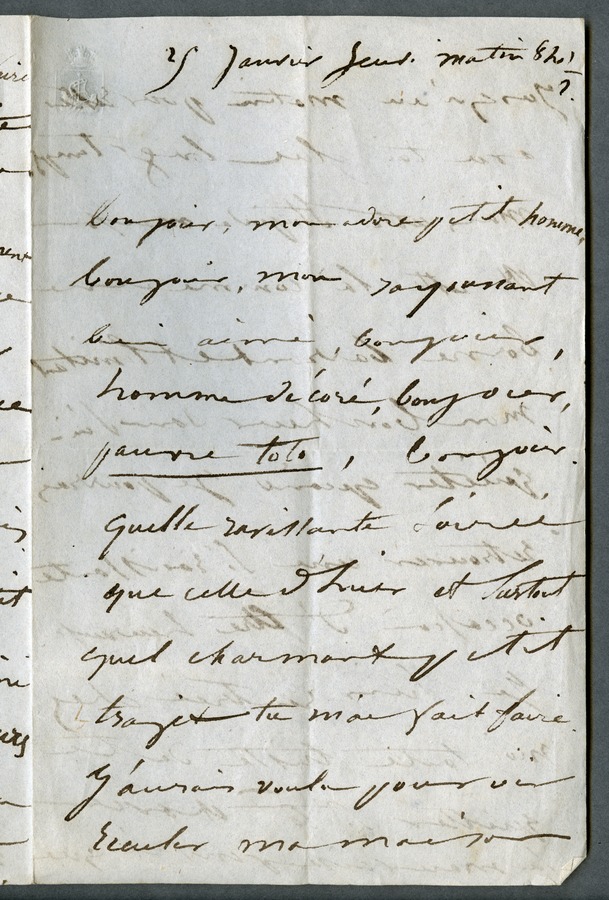 25 Janvier jeudi matin 8h ½
Bonjour, mon adoré petit homme,
bonjour, mon ravissant
bien aimé, bonjour,
homme décoré, bonjour,
pauvre toto, bonjour.
Quelle ravissante soirée
que celle d'hier et surtout
quel charmant petit
trajet tu m'as fait faire.
J'aurais voulu pouvoir
reculer ma maison